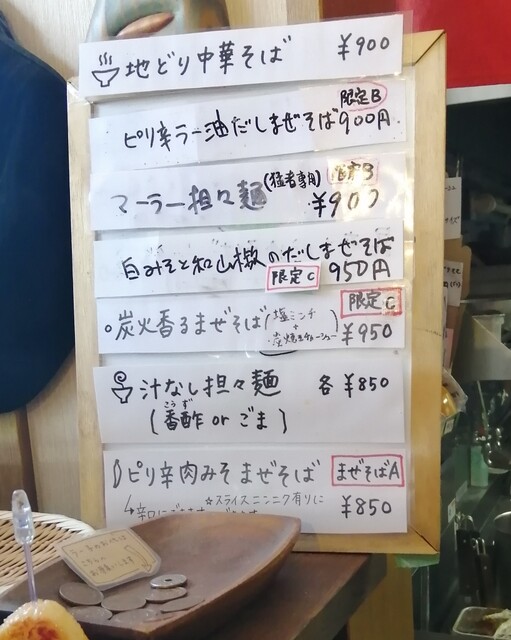 地どり中華そば ¥900
限定B
ピリ辛ラー油だしまぜそば 900円
マーラー担々麺 (猛者専用) 限定B
¥900
白みそと和山椒のだしまぜそば
限定C 950円
限定C
炭火香るまぜそば (塩ミンチ
+
¥950
汁なし担々麺 各 ¥850
こうず
(香酢 or ごま)
ピリ辛肉みそまぜそば まぜそばA
☆スライスニンニク有りに
¥850